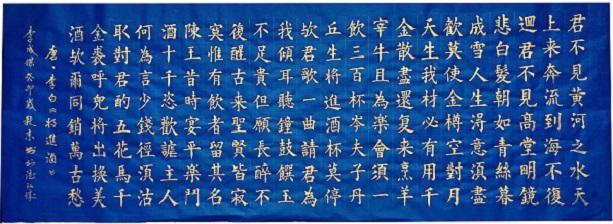 君不見黃河之水天
上来奔流到海不復
迴君不見高堂明鏡
悲白髮朝如青絲暮
成雪人生得意須盡
歡莫使金樽空對月
天生我材必有用千
金散盡還复来烹羊
宰牛且為樂會須一
飲三百杯岑夫子丹
丘生將進酒杯莫停
欤君歌一曲請君為
我傾耳聽鐘鼓饌玉
不足貴但願長醉不
復醒古来聖賢皆寂
寞惟有飲者留其名
陳王昔時宴平樂鬥
酒十千恣歡謔主人
何為言少錢徑須沽
取對君酌五花馬千
金裘呼兒將出換美
酒欤爾同銷萬古愁
唐·李白 將進酒
李成 癸卯歲